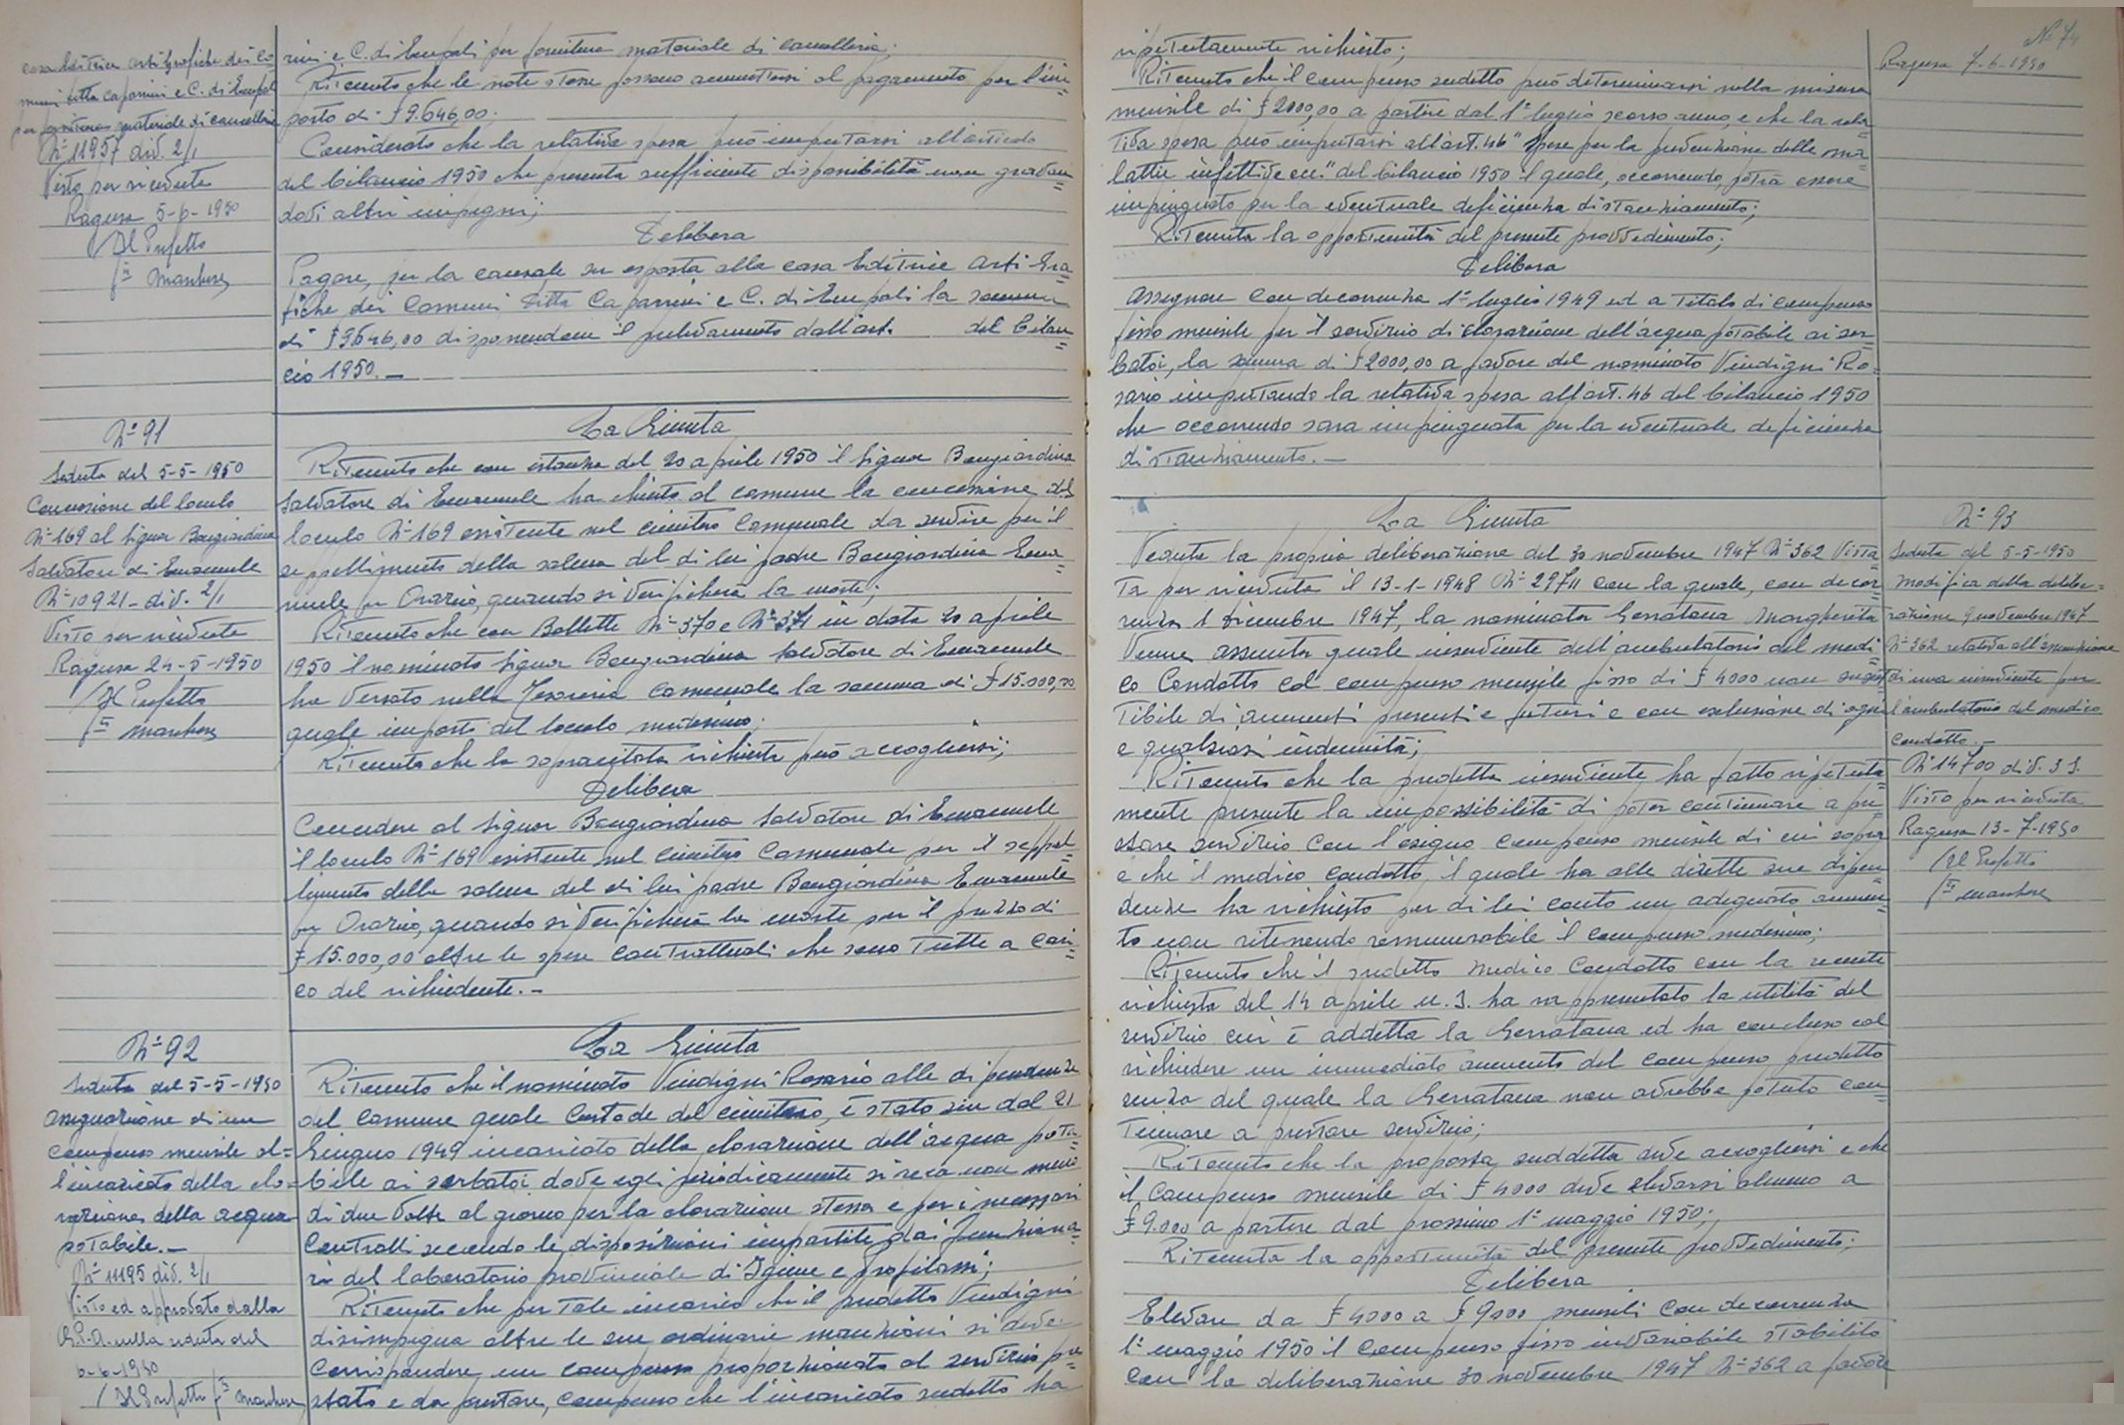 casa Editrice Arti Grafiche dei Co
muni ditta Caparrini e C. di Empoli
per fornitura materiale di cancelleria
N° 11957 div. 2/1
Visto per ricevuta
Ragusa 5-6-1950
Il Prefetto
f.to
rini e C. di Empoli per fornitura materiale di cancelleria;
Ritenuto che le note stesse possono ammettersi al pagamento per l'im=
porto di £ 9.646,00.
Considerato che la relativa spesa può imputarsi all'articolo
del bilancio 1950 che presenta sufficiente disponibilità non gravan=
dovi altri impegni;
Delibera
Pagare, per la causale su esposta alla casa Editrice Arti Gra=
fiche dei Comuni Ditta Caparrini e C. di Empoli la somma
di £ 9646,00 disponendone il prelevamento dall'art. del bilan=
cio 1950.—
N° 91
Seduta del 5-5-1950
Concessione del loculo
N° 169 al Signor Bongiardina
Salvatore di Emanuele
N° 10921 - div. 2/1
Visto per ricevuta
Ragusa 24-5-1950
Il Prefetto
f.to
La Giunta
Ritenuto che con istanza del 20 aprile 1950 il Signor Bongiardina
Salvatore di Emanuele ha chiesto al comune la concessione del
loculo N° 169 esistente nel cimitero Comunale da servire per il
seppellimento della salma del di lui padre Bongiardina Ema
nuele fu Orazio, quando si verificherà la morte;
Ritenuto che con Bollette N° 370 e N° 371 in data 20 aprile
1950 il nominato Signor Bongiardina Salvatore di Emanuele
ha versato nella Tesoreria Comunale la somma di £ 15.000,00
quale importo del loculo medesimo;
Ritenuto che la sopracitata richiesta può accogliersi;
Delibera
Concedere al Signor Bongiardina Salvatore di Emanuele
il loculo N° 169 esistente nel cimitero Comunale per il seppel=
limento della salma del di lui padre Bongiardina Emanuele
fu Orazio, quando si verificherà la morte per il prezzo di
£ 15.000,00 oltre le spese contrattuali che sono tutte a cari=
co del richiedente.—
N° 92
Seduta del 5-5-1950
Assegnazione di un
compenso mensile al=
l'incaricato della clo=
razione della acqua
potabile.—
N° 11195 div. 2/1
Visto ed approvato dalla
G.P.A. nella seduta del
6-6-1950
Il Prefetto f.to
La Giunta
Ritenuto che il nominato Vindigni Rosario alle dipendenze
del comune quale Custode del cimitero, è stato sin dal 21
Giugno 1949 incaricato della clorazione dell'acqua pota=
bile ai serbatoi dove egli periodicamente si reca non meno
di due volte al giorno per la clorazione stessa e per i necessari
controlli secondo le disposizioni impartite dai funziona=
ri del laboratorio provinciale di Igiene e Profilassi;
Ritenuto che per tale incarico che il predetto Vindigni
disimpegna oltre le sue ordinarie mansioni si deve
corrispondere un compenso proporzionato al servizio pre=
stato e da prestare, compenso che l'incaricato sudetto ha
N° 74
Ragusa 7-6-1950
ripetutamente richiesto;
Ritenuto che il compenso sudetto può determinarsi nella misura
mensile di £ 2000,00 a partire dal 1° luglio scorso anno, e che la rela=
tiva spesa può imputarsi all'art. 46 "Spese per la prevenzione delle ma=
lattie infettive ecc." del bilancio 1950 il quale, occorrendo, potrà essere
impinguato per la eventuale deficienza di stanziamento;
Ritenuta la opportunità del presente provvedimento;
Delibera
Assegnare con decorrenza 1° luglio 1949 ed a titolo di compenso
fisso mensile per il servizio di clorazione dell'acqua potabile ai ser=
batoi, la somma di £ 2000,00 a favore del nominato Vindigni Ro=
sario imputando la relativa spesa all'art. 46 del bilancio 1950
che occorrendo sarà impinguato per la eventuale deficienza
di stanziamento.—
La Giunta
Veduta la propria deliberazione del 30 novembre 1947 N° 362 Vista
ta per ricevuta il 13-1-1948 N° 29711 con la quale, con decor=
renza 1 dicembre 1947, la nominata Gerratana Margherita
Venne assunta quale inserviente dell'ambulatorio del medi=
co Condotto col compenso mensile fisso di £ 4000 non suscet
tibile di aumenti presenti e futuri e con esclusione di ogni
e qualsiasi indennità;
Ritenuto che la predetta inserviente ha fatto ripetuta=
mente presente la impossibilità di poter continuare a pre=
stare servizio con l'esiguo compenso mensile di cui sopra
e che il medico condotto, il quale ha alle dirette sue dipen=
denze ha richiesto per di lei conto un adeguato aumen=
to non ritenendo remunerabile il compenso medesimo;
Ritenuto che il sudetto Medico Condotto con la recente
richiesta del 14 aprile u.s. ha rappresentato la utilità del
servizio cui è addetta la Gerratana ed ha concluso col
richiedere un immediato aumento del compenso predetto
senza del quale la Gerratana non avrebbe potuto con=
tinuare a prestare servizio;
Ritenuto che la proposta suddetta deve accogliersi e che
il compenso mensile di £ 4000 deve elevarsi almeno a
£ 9.000 a partire dal prossimo 1° maggio 1950;
Ritenuta la opportunità del presente provvedimento;
Delibera
Elevare da £ 4000 a £ 9000 mensili con decorrenza
1° maggio 1950 il compenso fisso invariabile stabilito
con la deliberazione 30 novembre 1947 N° 362 a favore
N° 93
Seduta del 5-5-1950
Modifica della delibe=
razione 9 novembre 1947
N° 362 relativa all'assunzione
di una inserviente per
l'ambulatorio del medico
condotto.—
N° 14700 div. 3 S.
Visto per ricevuta
Ragusa 13-7-1950
Il Prefetto
f.to